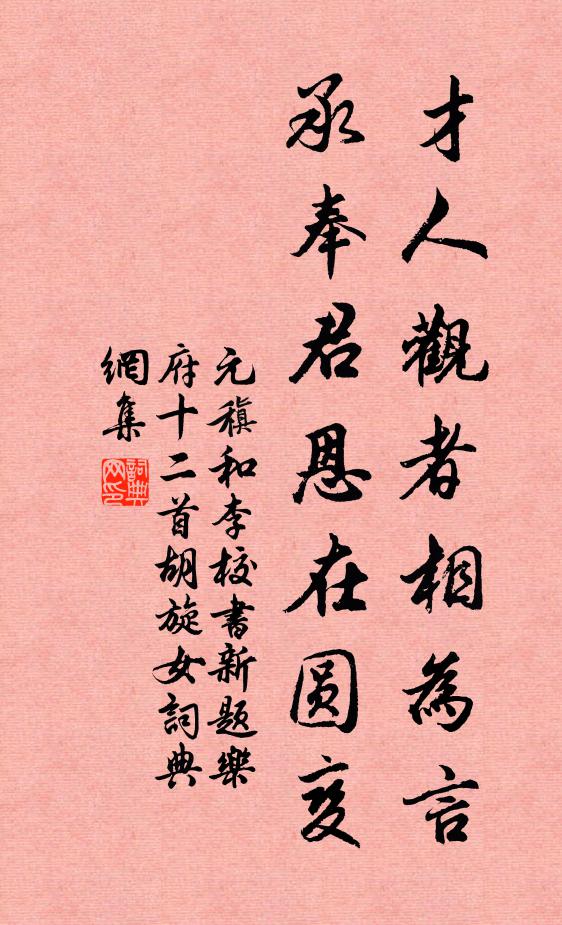 才人觀者相為言
承奉君恩在圓変
元稹和李校書新題樂
府十二首胡旋女詞典
網集
詞典
网印